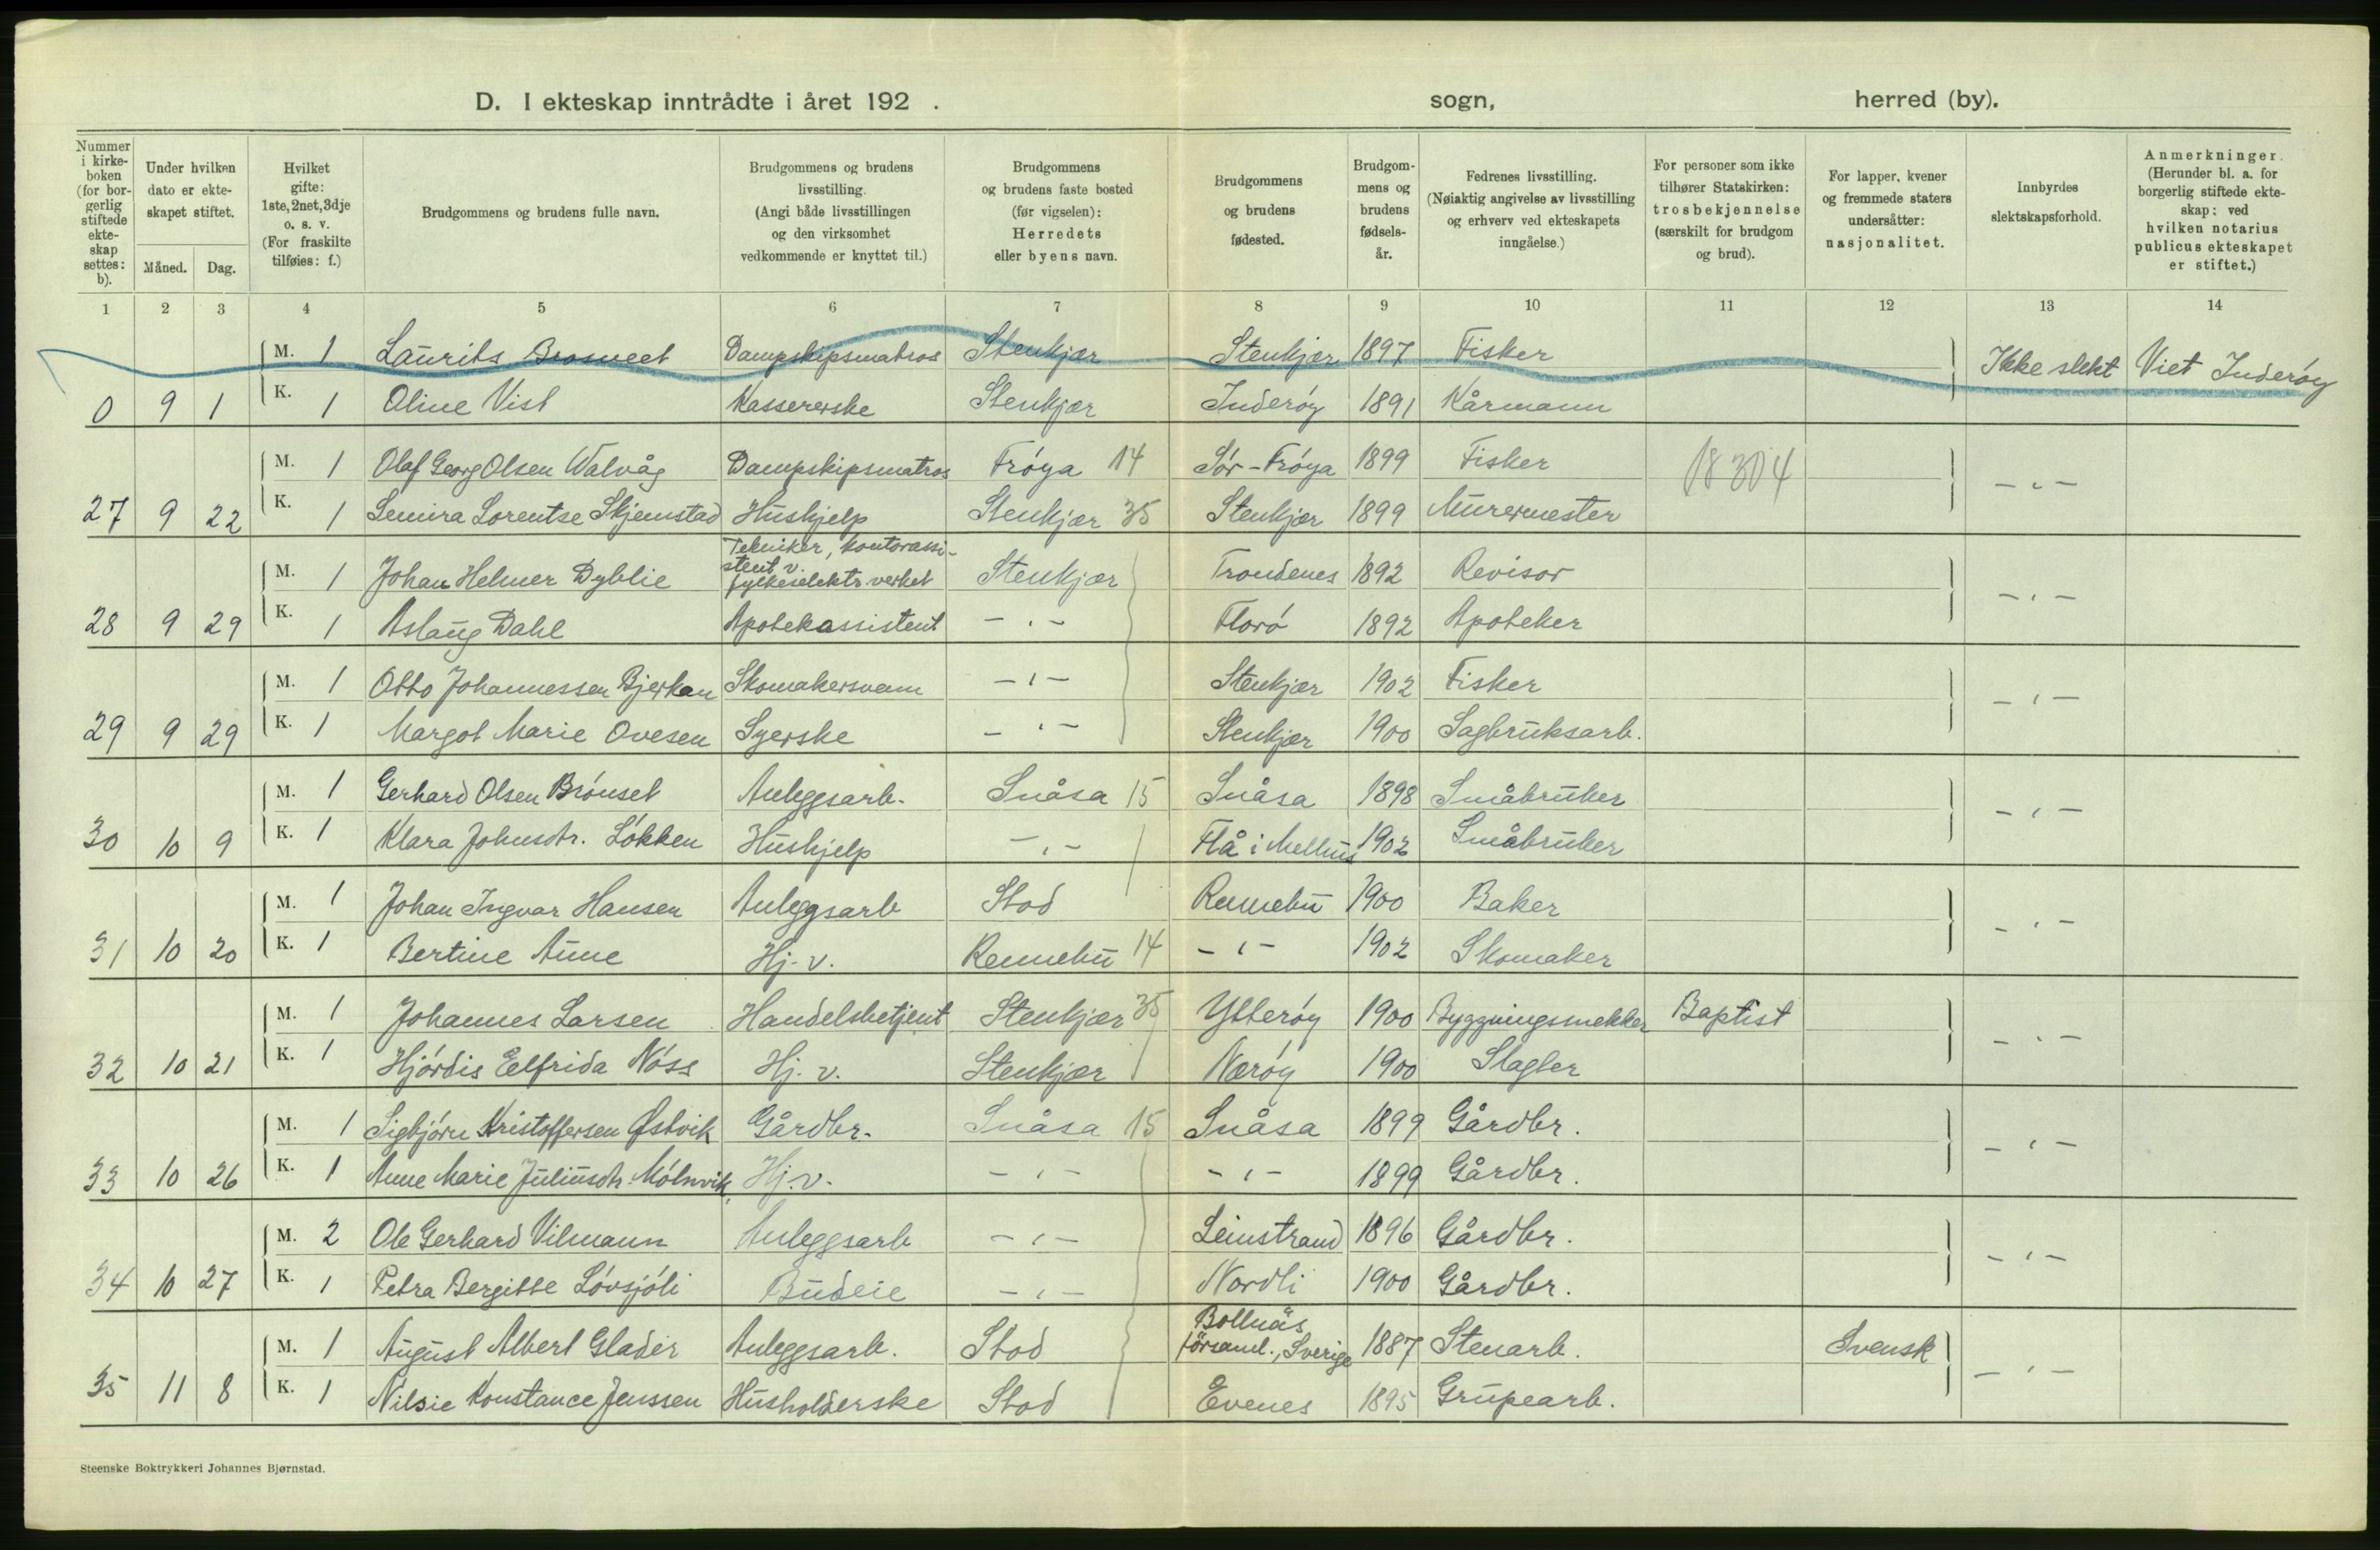 D. I ekteskap inntrådte i året 192 . sogn, herred (by).
Nummer i kirkeboken (for borgerlig stiftede ekteskap settes: b).
Under hvilken dato er ekteskapet stiftet.
Måned. Dag.
Hvilket gifte: 1ste, 2net, 3dje o. s. v. (For fraskilte tilføies: f.)
Brudgommens og brudens fulle navn.
Brudgommens og brudens livsstilling. (Angi både livsstillingen og den virksomhet vedkommende er knyttet til.)
Brudgommens og brudens faste bosted (før vigselen): Herredets eller byens navn.
Brudgommens og brudens fødested.
Brudgommens og brudens fødselsår.
Fedrenes livsstilling. (Nøiaktig angivelse av livsstilling og erhverv ved ekteskapets inngåelse.)
For personer som ikke tilhører Statskirken: trosbekjennelse (særskilt for brudgom og brud).
For lapper, kvener og fremmede staters undersåtter: nasjonalitet.
Innbyrdes slektskapsforhold.
Anmerkninger. (Herunder bl. a. for borgerlig stiftede ekteskap: ved hvilken notarius publicus ekteskapet er stiftet.)
1 2 3 4 5 6 7 8 9 10 11 12 13 14
M. 1 Laurits Brosveet Dampskipsmatros Stenkjær Stenkjær 1897 Fisker Ikke slekt Viet Inderøy
0 9 1 K. 1 Oline Vist Kassererske Stenkjær Inderøy 1891 Kårmann
M. 1 Olaf Georg Olsen Walvåg Dampskipsmatros Frøya 14 Sør-Frøya 1899 Fisker 18304 - " -
27 9 22 K. 1 Lemira Lorentse Skjemstad Hushjelp Stenkjær 35 Stenkjær 1899 Murermester
M. 1 Johan Helmer Dyblie Tekniker, kontorassistent v. fylkeselektr.verket Stenkjær Trondenes 1892 Revisor - " -
28 9 29 K. 1 Aslaug Dahl Apotekassistent - " - Florø 1892 Apoteker
M. 1 Otto Johannessen Bjerkan Skomakersvenn - " - Stenkjær 1902 Fisker - " -
29 9 29 K. 1 Margot Marie Ovesen Syerske - " - Stenkjær 1900 Sagbruksarb.
M. 1 Gerhard Olsen Brønset Anleggsarb. Snåsa 15 Snåsa 1898 Småbruker - " -
30 10 9 K. 1 Klara Johnsdtr. Løkken Hushjelp - " - Flå i Melhus 1902 Småbruker
M. 1 Johan Ingvar Hansen Anleggsarb Stod Rennebu 1900 Baker - " -
31 10 20 K. 1 Bertine Aune Hj. v. Rennebu 14 - " - 1902 Skomaker
M. 1 Johannes Larsen Handelsbetjent Stenkjær 35 Ytterøy 1900 Byggningssnekker Baptist - " -
32 10 21 K. 1 Hjørdis Elfrida Nøss Hj. v. Stenkjær Nærøy 1900 Slagter
M. 1 Sigbjørn Kristoffersen Østvik Gårdbr. Snåsa 15 Snåsa 1899 Gårdbr. - " -
33 10 26 K. 1 Anne Marie Juliusdtr. Mølnvik Hj. v. - " - - " - 1899 Gårdbr.
M. 2 Ole Gerhard Vilmann Anleggsarb - " - Leinstrand 1896 Gårdbr. - " -
34 10 27 K. 1 Petra Bergitte Løvsjøli Budeie - " - Nordli 1900 Gårdbr.
M. 1 August Albert Glader Anleggsarb. Stod Bollnäs församl., Sverige 1887 Stenarb. Svensk - " -
35 11 8 K. 1 Nilsie Konstance Jenssen Husholderske Stod Evenes 1895 Grupearb.
Steenske Boktrykkeri Johannes Bjørnstad.